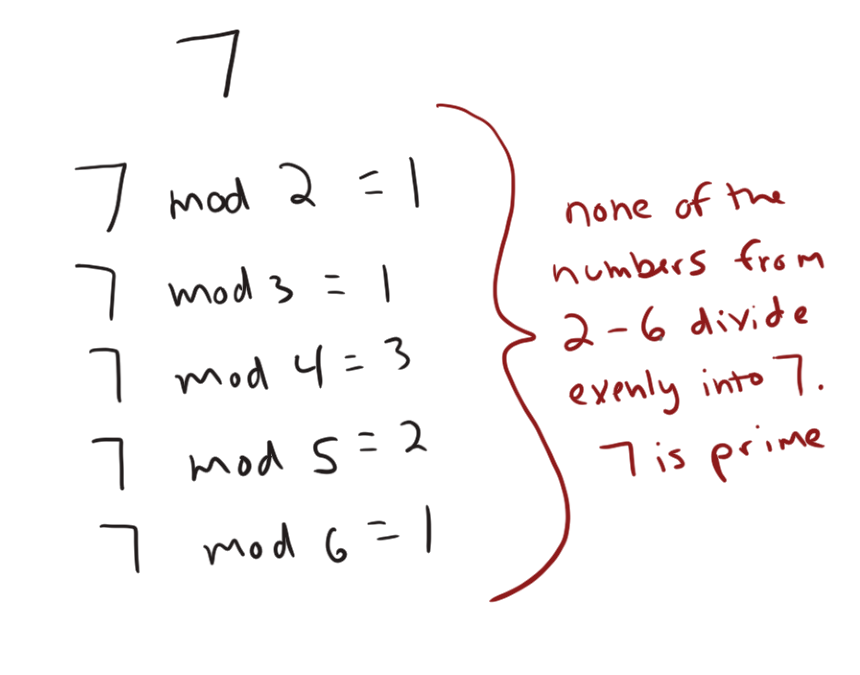 7
7 mod 2 = 1
7 mod 3 = 1
7 mod 4 = 3
7 mod 5 = 2
7 mod 6 = 1
none of the
numbers from
2 - 6 divide
evenly into 7.
7 is prime